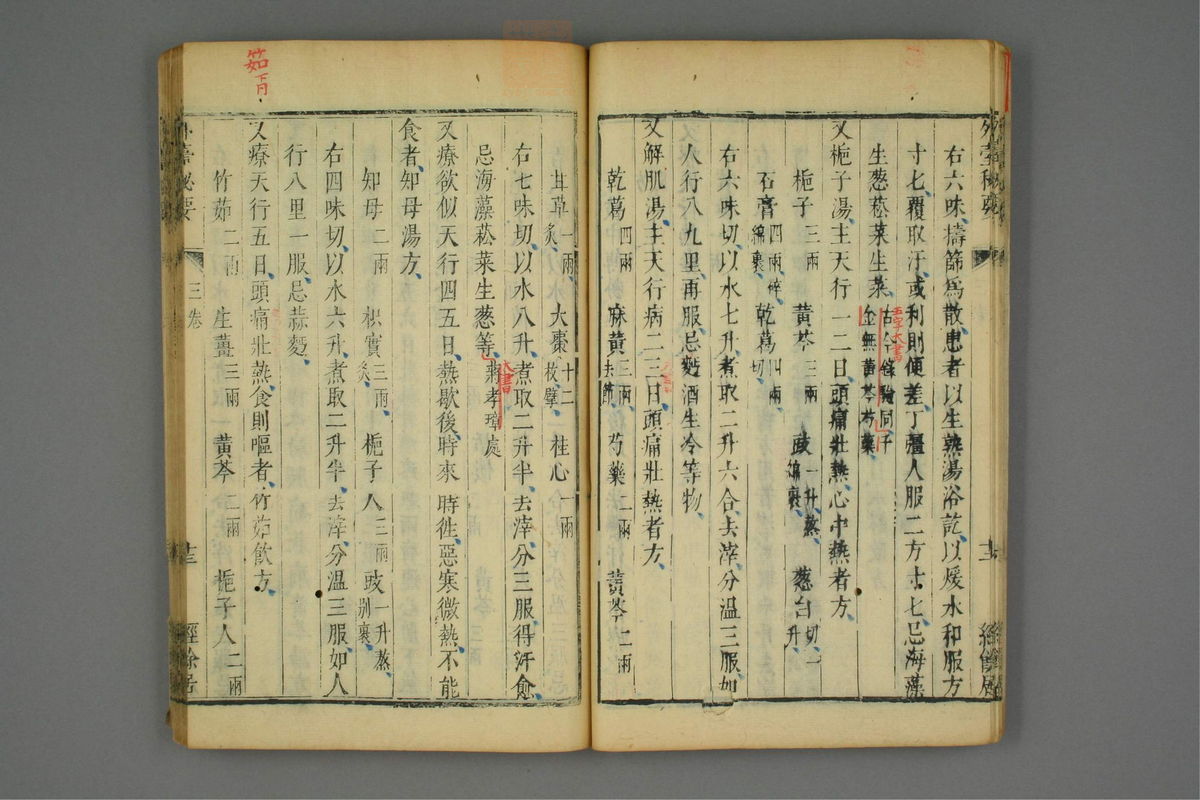 右六味擣篩為散患者以生熟湯浴訖以煖水和服方
寸七覆取汗或利則便差丁彊人服二方寸七忌海藻
生葱菘菜生菜
古今錄驗同千
金無黄芩芍藥
五字大書
又梔子湯主天行一二日頭痛壯熱心中熱者方
梔子三兩 黄芩三兩 豉一升蒸綿裹 葱白切一升
石膏四兩碎綿裹 乾葛四兩切
右六味切以水七升煮取二升六合去滓分温三服如
人行八九里再服忌麪酒生冷等物
又解肌湯主天行病二三日頭痛壯熱者方
乾葛四兩 麻黄三兩去節 芍藥二兩 黄芩二兩
甘草一兩炙 大棗十二枚擘 桂心一兩
右七味切以水八升煮取二升半去滓分三服得汗愈
忌海藻菘菜生葱等蔣孝璋處
大書
又療欲似天行四五日熱歇後時來時徃惡寒微熱不能
食者知母湯方
知母二兩 枳實三兩炙 梔子人三兩 豉一升蒸別裹
右四味切以水六升煮取二升半去滓分温三服如人
行八里一服忌蒜麪
又療天行五日頭痛壯熱食則嘔者竹茹飲方
竹茹二兩 生薑三兩 黄芩二兩 梔子人二兩
外臺秘要
三卷
十三
經餘居
茹